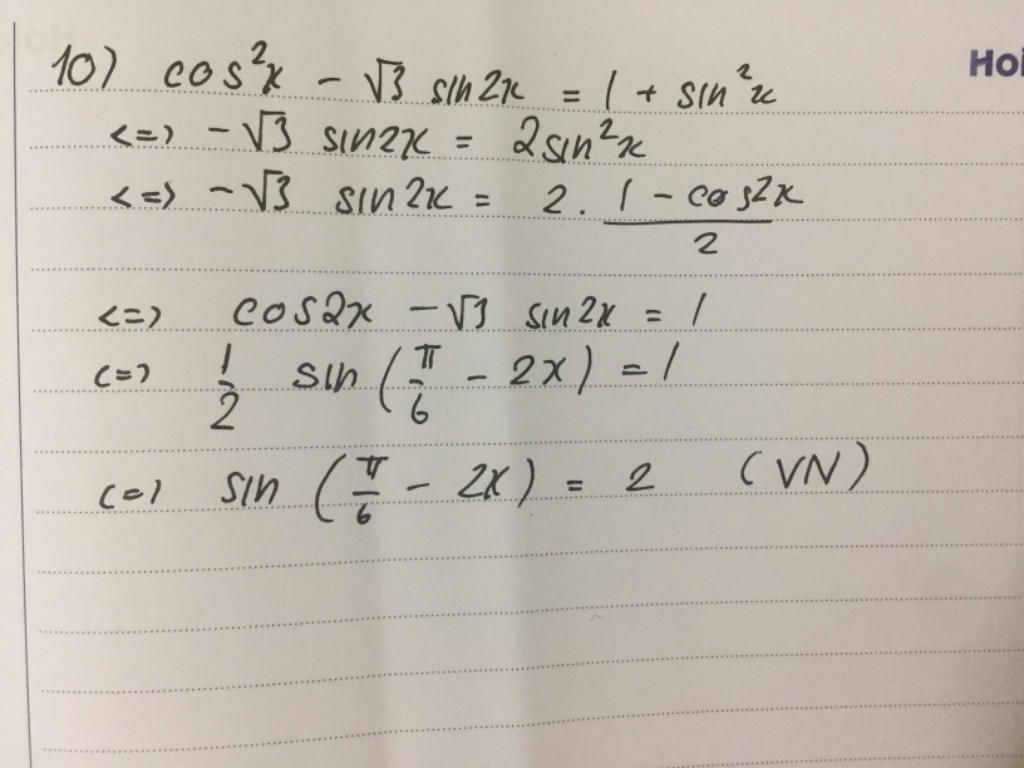 Hoi
10) cos²x - √3 sin2x = 1 + sin²x
<=> -√3 sin2x = 2sin²x
<=> -√3 sin2x = 2. (1 - cos2x)/2
<=> cos2x - √3 sin2x = 1
<=> 1/2 sin(π/6 - 2x) = 1
<=> sin(π/6 - 2x) = 2 (VN)